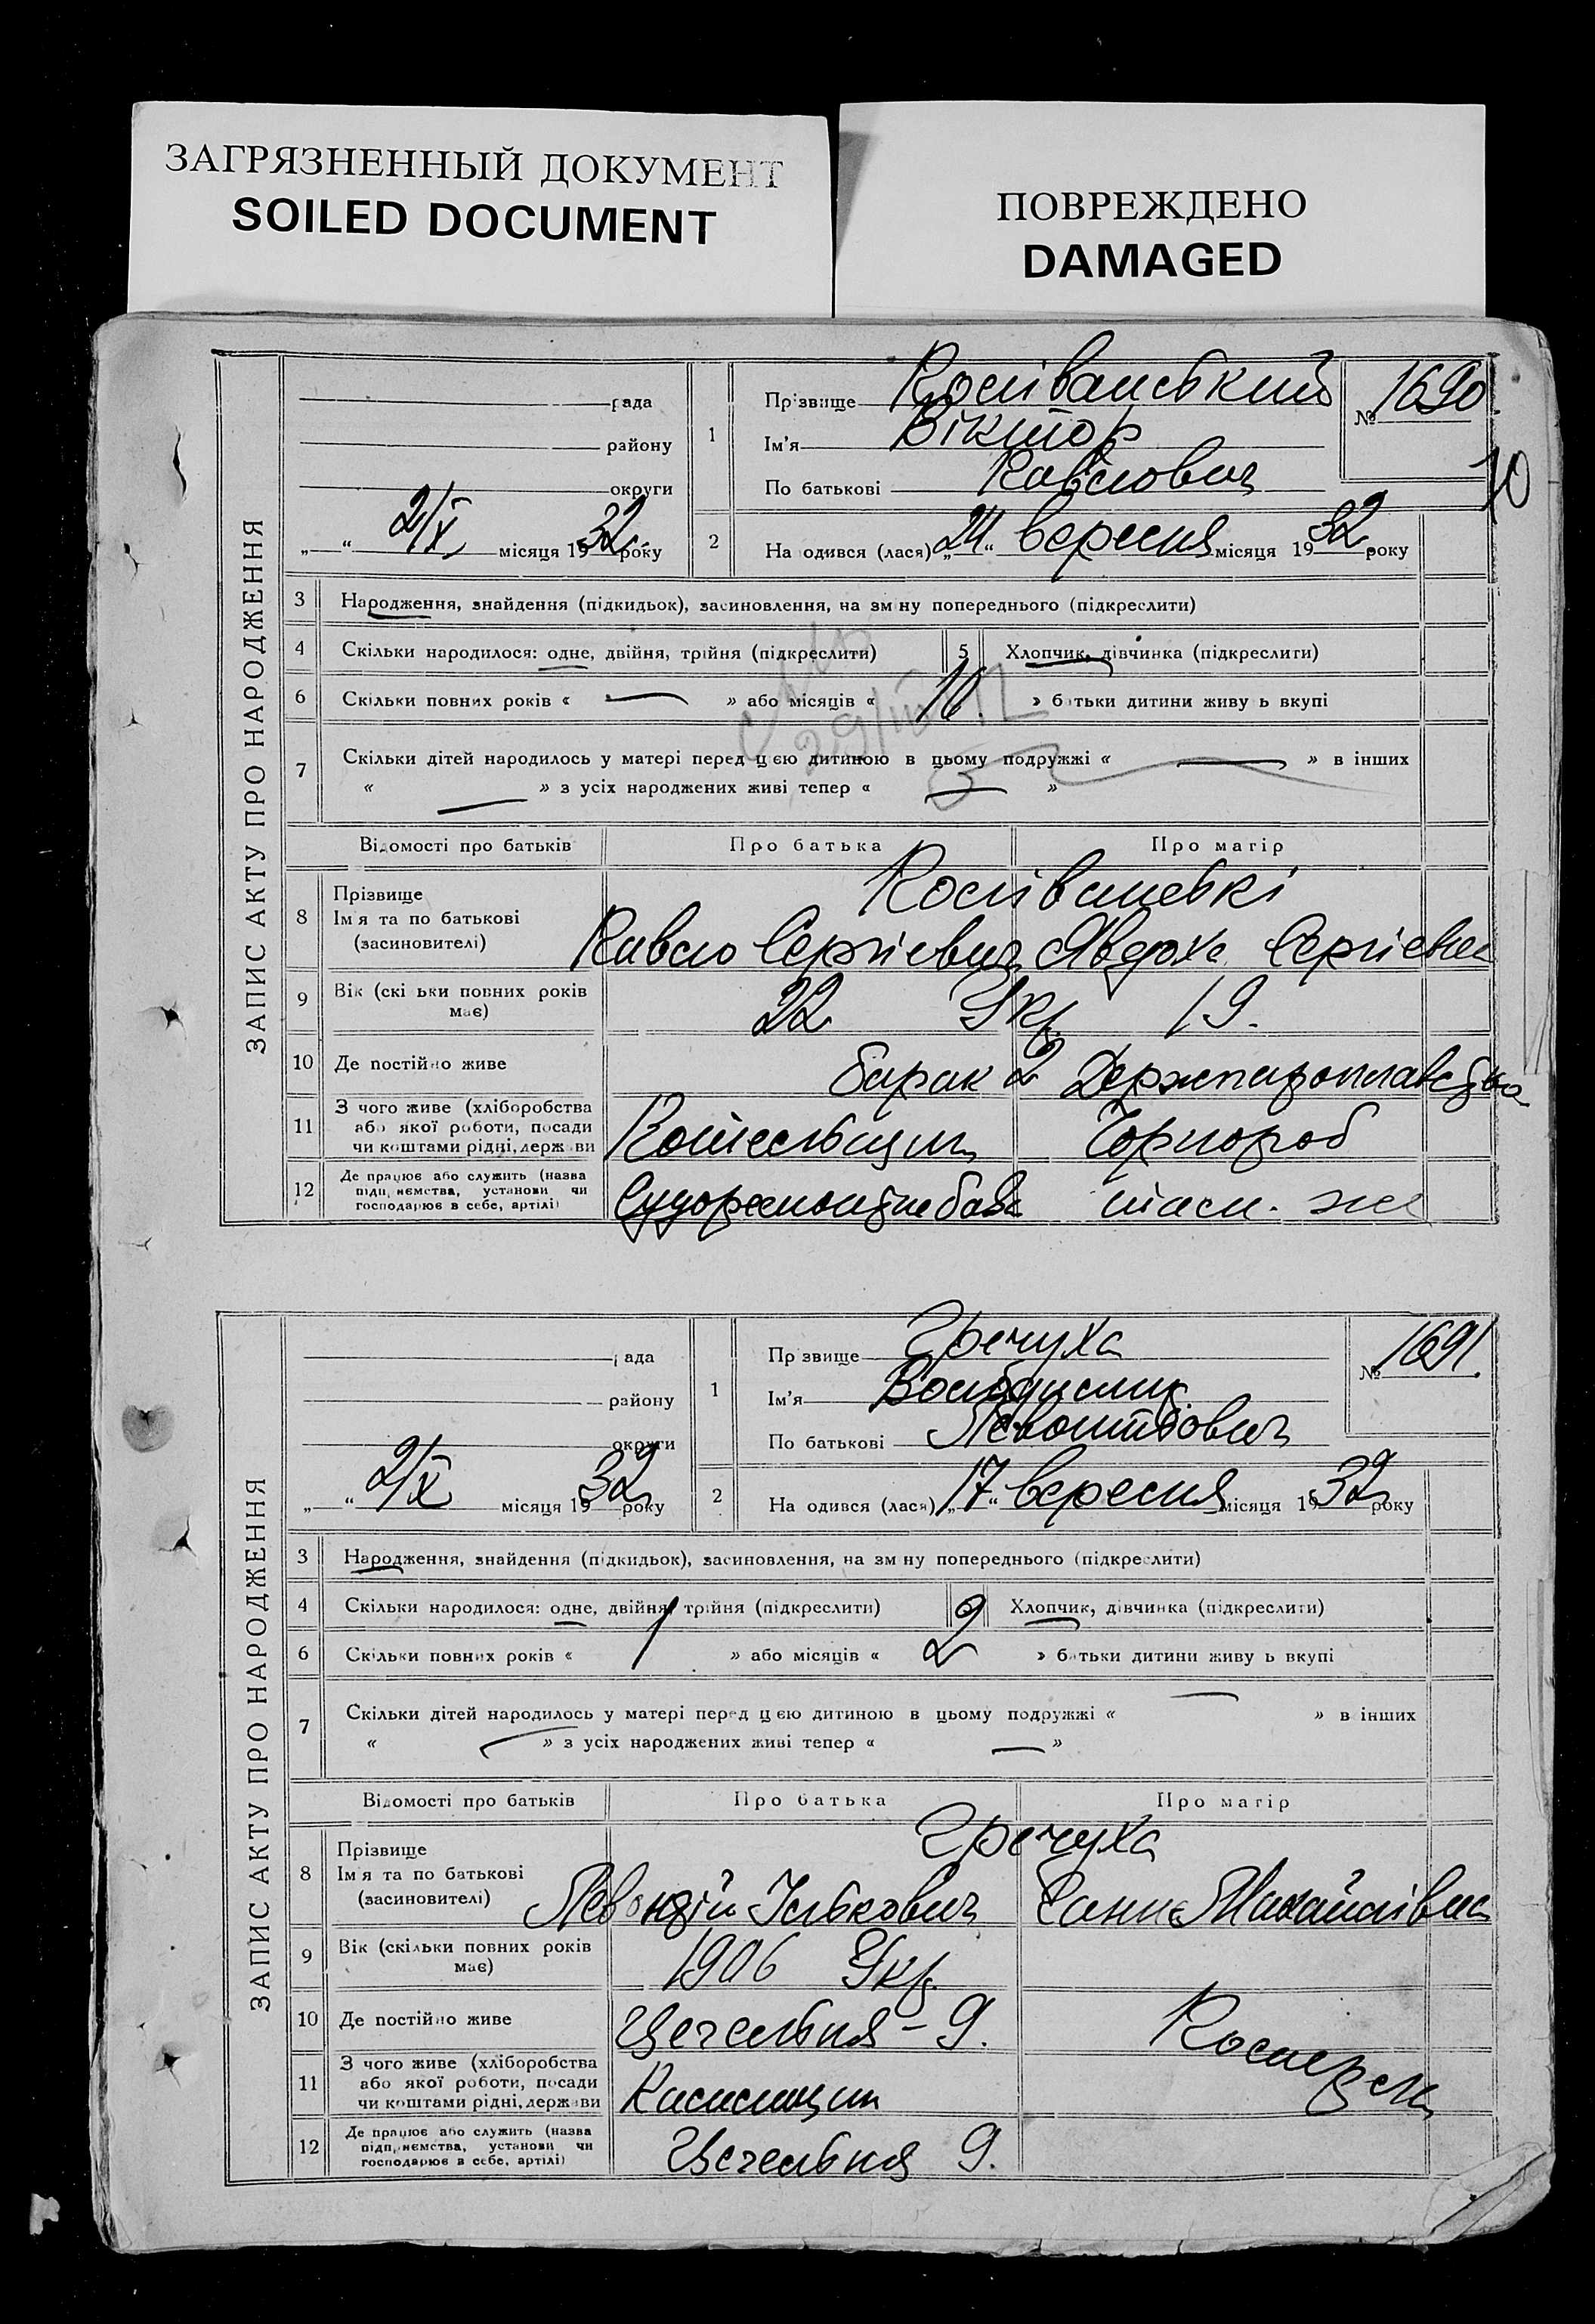 ЗАГРЯЗНЕННЫЙ ДОКУМЕНТ
SOILED DOCUMENT
ПОВРЕЖДЕНО
DAMAGED
ЗАПИС АКТУ ПРО НАРОДЖЕННЯ
рада
району
округи
„ “ 2/X місяця 1932 року
1
Прізвище
Ім'я Віктор
По батькові Павлович
№ 1690
10
2
На одився (лася) „24“ вересня місяця 1932 року
3 Народження, знайдення (підкидьок), засиновлення, на зміну попереднього (підкреслити)
4 Скільки народилося: одне, двійня, трійня (підкреслити) 5 Хлопчик, дівчинка (підкреслити)
6 Скільки повних років « — » або місяців « 10 » батьки дитини живу ь вкупі
7 Скільки дітей народилось у матері перед цією дитиною в цьому подружжі « — » в інших
« — » з усіх народжених живі тепер « — »
Відомості про батьків Про батька Про матір
8 Прізвище
Ім'я та по батькові Павло Сергієвич Явдоха Сергієвна
(засиновителі)
9 Вік (скільки повних років має) 22 Укр. 19.
10 Де постійно живе барак 2 Держпароплавства
11 З чого живе (хліборобства
або якої роботи, посади
чи коштами рідні, держави Котельщик Чорнороб
12 Де працює або служить (назва
підприємства, установи чи
господарює в себе, артілі)
ЗАПИС АКТУ ПРО НАРОДЖЕННЯ
рада
району
округи
„ “ 2/X місяця 1932 року
1
Прізвище Гречуха
Ім'я
По батькові
№ 1691.
2
На одився (лася) „17“ вересня місяця 1932 року
3 Народження, знайдення (підкидьок), засиновлення, на зміну попереднього (підкреслити)
4 Скільки народилося: одне, двійня, трійня (підкреслити) Хлопчик, дівчинка (підкреслити)
6 Скільки повних років « 1 » або місяців « 2 » батьки дитини живу ь вкупі
7 Скільки дітей народилось у матері перед цією дитиною в цьому подружжі « — » в інших
« — » з усіх народжених живі тепер « — »
Відомості про батьків Про батька Про матір
8 Прізвище Гречуха
Ім'я та по батькові Ількович Ганна Михайлівна
(засиновителі)
9 Вік (скільки повних років має) 1906 Укр.
10 Де постійно живе Цегельня - 9.
11 З чого живе (хліборобства
або якої роботи, посади
чи коштами рідні, держави
12 Де працює або служить (назва
підприємства, установи чи
господарює в себе, артілі) Цегельня 9.